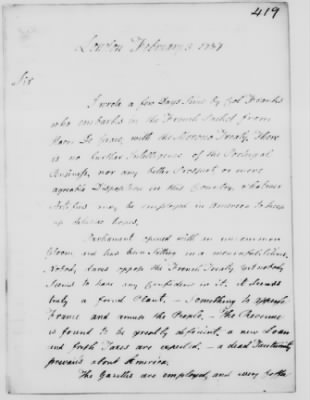 419
London February 3. 1787
Sir
I wrote a few Days since by Col. Franks
who embarks in the French Packet from
Havre De Grace, with the Morocco Treaty. There
is no further Intelligence of the Principal
Business, nor any better Prospect or more
agreable Disposition in this Country, whatever
Articles may be employed in America to keep
up delusive hopes.
Parliament opened with an uncommon
Gloom and has been sitting in a mournful Silence.
Nobody dares oppose the French Treaty yet nobody
seems to have any Confidence in it. it stands
truly a forced Plant. — something to appease
France and amuse the People. — The Revenue
is found to be greatly deficient. a new Loan
and fresh Taxes are expected. — a dead Taciturnity
prevails about America.
The Gazettes are employed, and very